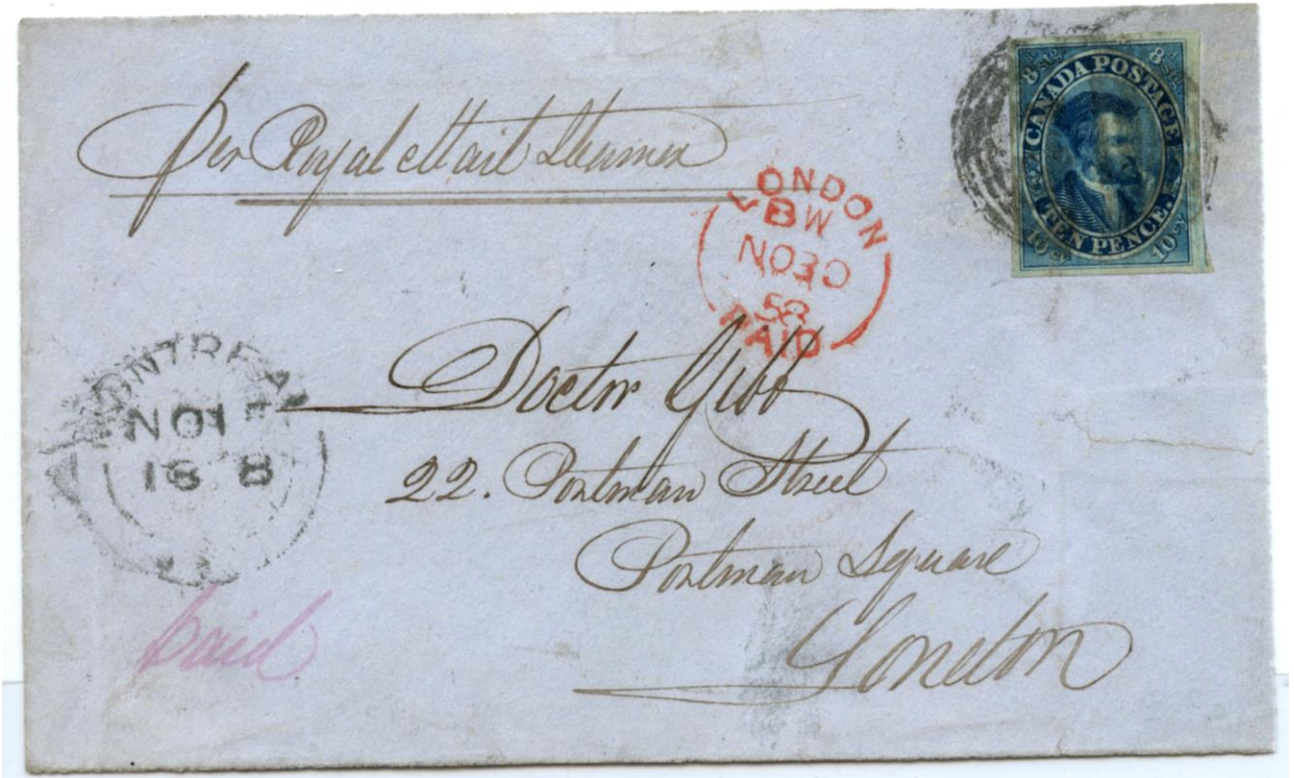 per Royal Mail Steamer
8d stg. 8d stg.
CANADA POSTAGE
TEN PENCE.
10 cy 10 cy
LONDON
BW
NO 30
58
PAID
MONTREAL
NO 1
18 8
Doctor Gibb
22. Portman Street
Portman Square
London
paid